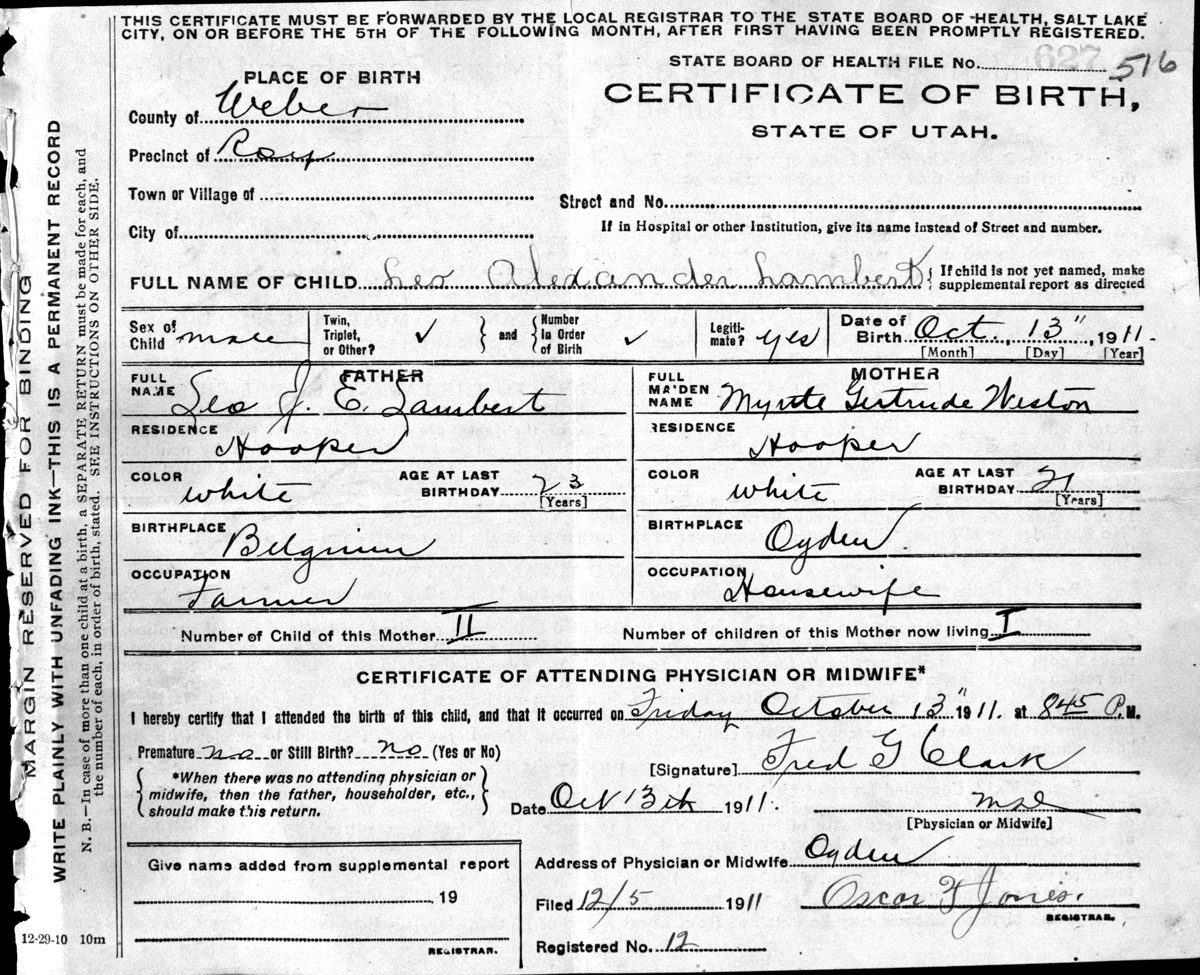 THIS CERTIFICATE MUST BE FORWARDED BY THE LOCAL REGISTRAR TO THE STATE BOARD OF HEALTH, SALT LAKE
CITY, ON OR BEFORE THE 5TH OF THE FOLLOWING MONTH, AFTER FIRST HAVING BEEN PROMPTLY REGISTERED.
MARGIN RESERVED FOR BINDING
WRITE PLAINLY WITH UNFADING INK—THIS IS A PERMANENT RECORD
N. B.—In case of more than one child at a birth, a SEPARATE RETURN must be made for each, and
the number of each, in order of birth, stated. SEE INSTRUCTIONS ON OTHER SIDE.
STATE BOARD OF HEALTH FILE No. 627 516
PLACE OF BIRTH
CERTIFICATE OF BIRTH,
STATE OF UTAH.
County of Weber
Precinct of Roy
Town or Village of
Street and No.
City of
If in Hospital or other Institution, give its name instead of Street and number.
FULL NAME OF CHILD Leo Alexander Lambert { If child is not yet named, make
supplemental report as directed
Sex of Child male
Twin, Triplet, or Other? ✓ } and { Number in Order of Birth ✓
Legitimate? yes
Date of Birth Oct. 13", 1911.
[Month] [Day] [Year]
FATHER
FULL NAME Leo J. E. Lambert
RESIDENCE Hooper
COLOR white AGE AT LAST BIRTHDAY 23 [Years]
BIRTHPLACE Belgium
OCCUPATION Farmer
MOTHER
FULL MAIDEN NAME Myrtle Gertrude Weston
RESIDENCE Hooper
COLOR white AGE AT LAST BIRTHDAY 21 [Years]
BIRTHPLACE Ogden
OCCUPATION Housewife
Number of Child of this Mother II Number of children of this Mother now living I
CERTIFICATE OF ATTENDING PHYSICIAN OR MIDWIFE*
I hereby certify that I attended the birth of this child, and that it occurred on Friday October 13" 1911. at 845 P.M.
Premature no or Still Birth? no (Yes or No)
{ *When there was no attending physician or
midwife, then the father, householder, etc.,
should make this return. }
[Signature] Fred G Clark
Date Oct 13th 1911.
[Physician or Midwife]
Give name added from supplemental report
19
REGISTRAR.
Address of Physician or Midwife Ogden
Filed 12/5 1911 Oscar F Jones.
REGISTRAR.
Registered No. 12
12-29-10 10m